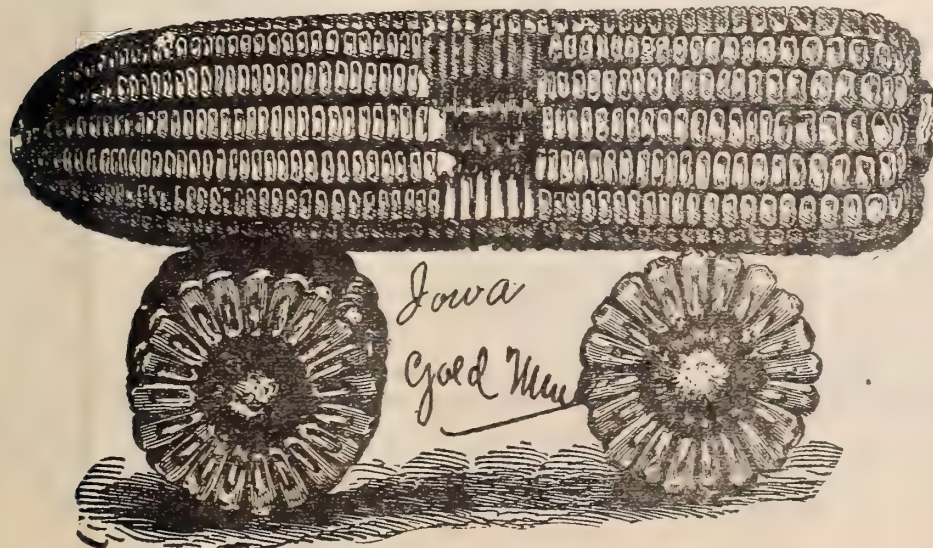 Iowa
Gold Mine